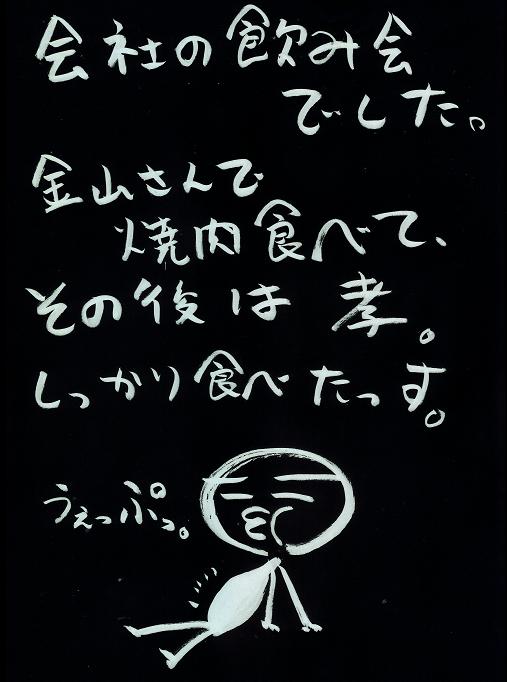 会社の飲み会
でした。
金山さんで
焼肉食べて、
その後は 孝。
しっかり食べたっす。
うぇっぷっ。